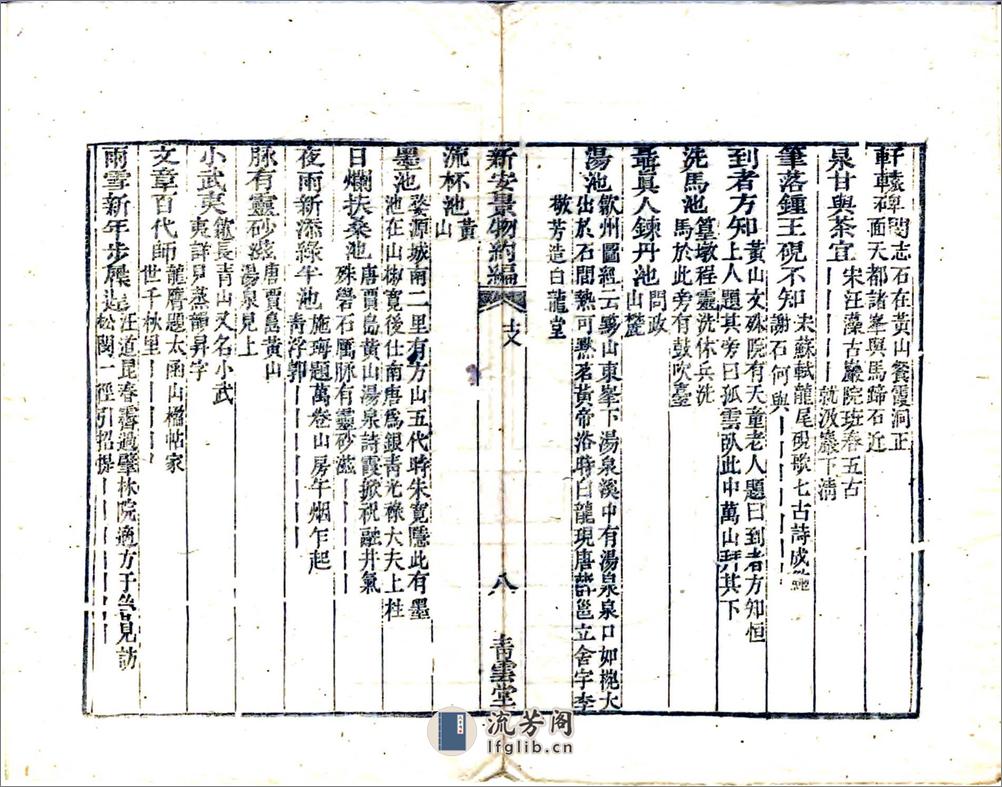 軒轅碑閔志石在黃山餐霞洞正
面天都諸峯與馬蹄石近
泉甘與茶宜宋汪藻古巖院班春五古
就汲巖下清｜｜｜｜｜
筆落鍾王硯不知宋蘇軾龍尾硯歌七古詩成鮑
謝石何與｜｜｜｜｜｜｜
到者方知黃山文殊院有天童老人題曰到者方知恒
上人題其旁曰孤雲臥此中萬山拜其下
洗馬池篁墩程靈洗休兵洗
馬於此旁有鼓吹臺
聶真人鍊丹池問政
山麓
湯池歙州圖經云黟山東峯下湯泉溪中有湯泉泉口如椀大
出於石間熱可㸃茗黃帝浴時白龍現唐薛邕立舍字李
敬芳造白龍堂
新安景物約編
八
青雲堂
流杯池黃
山
墨池婺源城南二里有方山五代時朱寬隱此有墨
池在山椒寬後仕南唐爲銀青光祿大夫上柱
日爛扶桑池唐賈島黃山湯泉詩霞掀祝融井氣
殊礜石厲脉有靈砂滋｜｜｜｜｜
夜雨新添綠半池施璜題萬卷山房午烟乍起
青浮郭｜｜｜｜｜｜｜
脉有靈砂滋唐賈島黃山
湯泉見上
小武夷篁長青山又名小武
夷詳只蒸韻昇字
文章百代師龍膺題太函山櫺帖家
世千秋里｜｜｜｜｜
雨雪新年步屧汪道昆春霽過肇林院適方于魯見訪
松閣一徑引招提｜｜｜｜｜｜｜
流芳阁
lfglib.cn